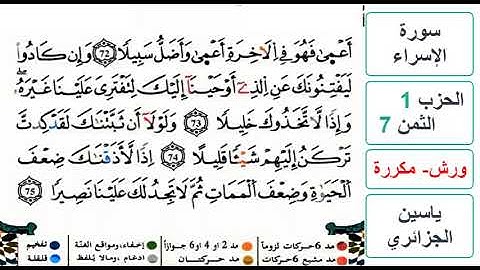 أَعْمَىٰ فَهُوَ فِي اِ۬لَاخِرَةِ أَعْمَىٰ وَأَضَلُّ سَبِيلًا 72 وَإِن كَادُواْ
لَيَفْتِنُونَكَ عَنِ اِ۬لذِےٓ أَوْحَيْنَآ إِلَيْكَ لِتَفْتَرِيَ عَلَيْنَا غَيْرَهُۥ
وَإِذًا لَّاتَّخَذُوكَ خَلِيلًا 73 وَلَوْلَآ أَن ثَبَّتْنَٰكَ لَقَدْ كِدتَّ
تَرْكَنُ إِلَيْهِمْ شَيْـًٔا قَلِيلًا 74 إِذًا لَّأَذَقْنَٰكَ ضِعْفَ
اَ۬لْحَيَوٰةِ وَضِعْفَ اَ۬لْمَمَاتِ ثُمَّ لَا تَجِدُ لَكَ عَلَيْنَا نَصِيرًا 75
سورة
الإسراء
الحزب 1
الثمن 7
ورش- مكررة
ياسين
الجزائري
مد 6 حركات لزوماً
مد 2 او 4 او 6 جوازاً
إخفاء، ومواقع الغنّة
تفخيم
مد مشبع 6 حركات
مد حركتان
ادغام ، ومالا يُلفظ
قلقلة